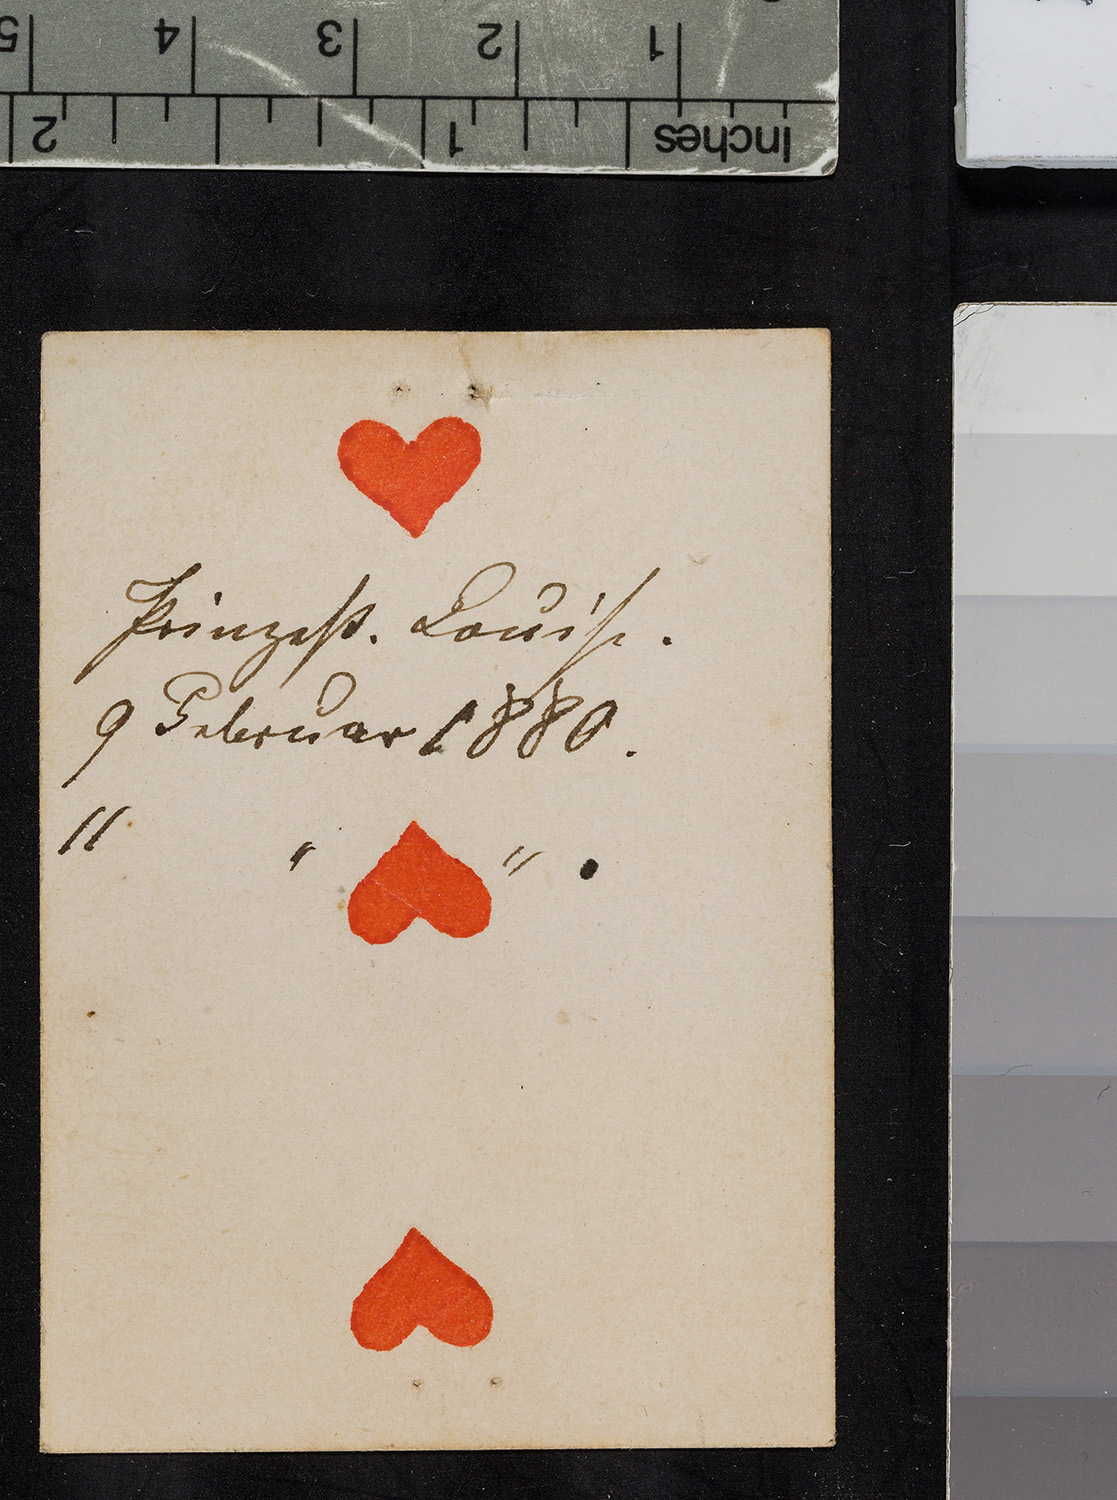 5 4 3 2 1
2 1 Inches
Prinzess. Louise.
9 Februar 1880.
11 " " .